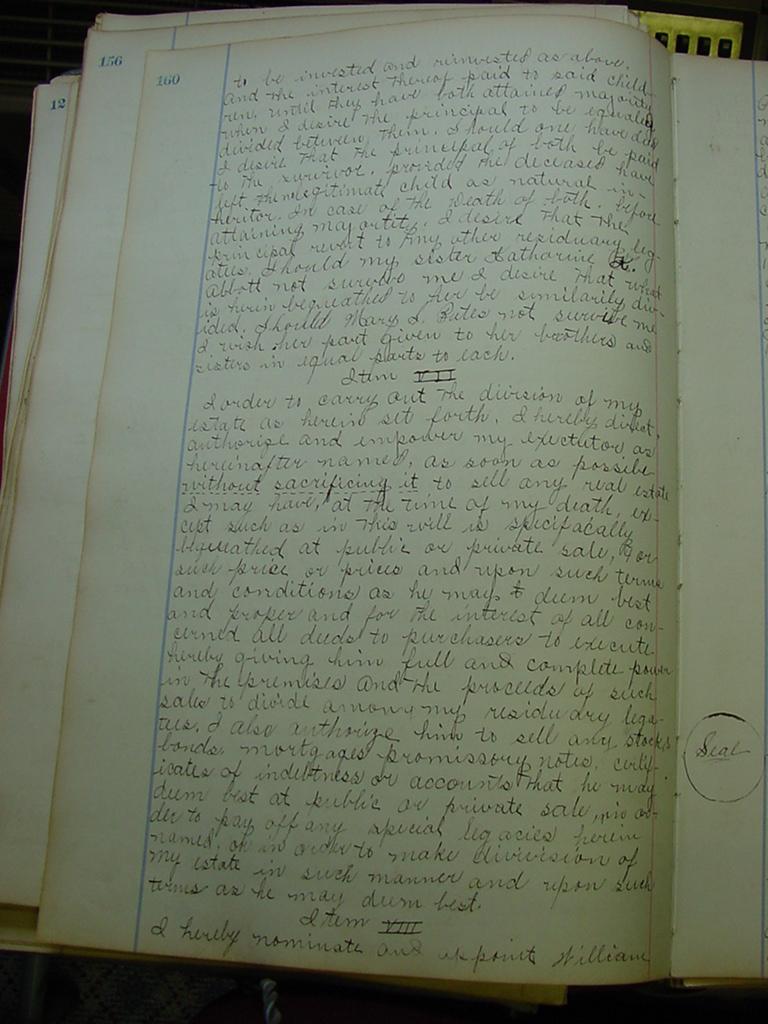 156
160
12
to be invested and reinvested as above.
And the interest thereof paid to said child-
ren, until they have both attained majority
when I desire the principal to be equally
divided between them. Should one have died
I desire that the principal of both be paid
to the survivor, provided the deceased have
left no legitimate child as natural in-
heritor. In case of the Death of both, before
attaining majortity, I desire that the
principal revert to my other residuary leg-
atees. Should my sister Katharine K.
Abbott not survive me I desire that what
is herin bequeathed to her be similarily div-
ided. Should Mary L. Bates not survive me
I wish her part given to her brothers and
sisters in equal parts to each.
Item VII
I order to carry out the division of my
estate as herein set forth, I hereby direct,
authorize and empower my executor as
hereinafter named, as soon as possible
without sacrificing it to sell any real estate
I may have, at the time of my death, ex-
cept such as in this will is specifacally
bequeathed at public or private sale, for
such price or prices and upon such terms
and conditions as he may deem best
and proper and for the interest of all con-
cerned all deeds to purchasers to execute
hereby giving him full and complete power
in the premises and the proceeds of such
sales to divide among my residuary lega-
tees. I also authorize him to sell any stocks
bonds, mortgages promissory notes, certif-
icates of indebtness or accounts that he may
deem best at public or private sale, in or-
der to pay off any special legacies herein
named, or in order to make division of
my estate in such manner and upon such
terms as he may deem best.
Item VIII
I hereby nominate and appoint William
Seal